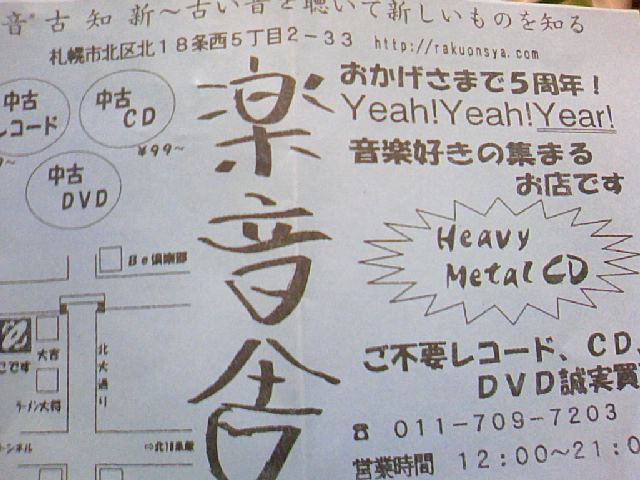 音古知新～古い音を聴いて新しいものを知る
札幌市北区北18条西5丁目2-33 http://rakuonsya.com
中古
レコード
中古
CD
¥99~
中古
DVD
楽音舎
おかげさまで5周年!
Yeah!Yeah!Year!
音楽好きの集まる
お店です
Heavy
Metal CD
ご不要レコード、CD、
DVD誠実買
☎ 011-709-7203
営業時間 12:00～21:0
Be倶楽部
大吉
こです
北大通り
ラーメン大将
トンネル
⇨北18条駅